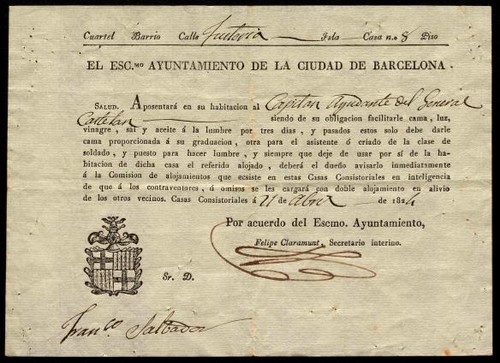 Cuartel Barrio Calle Fusteria Isla Casa n.º 8 Piso
EL ESC.MO AYUNTAMIENTO DE LA CIUDAD DE BARCELONA.
SALUD. Aposentará en su habitacion al Capitan Ayudante del General
Castellan siendo de su obligacion facilitarle cama, luz,
vinagre, sal y aceite á la lumbre por tres dias, y pasados estos solo debe darle
cama proporcionada á su graduacion, otra para el asistente ó criado de la clase de
soldado, y puesto para hacer lumbre, y siempre que deje de usar por sí de la habita-
cion de dicha casa el referido alojado, deberá el dueño avisarlo inmediatamente
á la Comision de alojamientos que ecsiste en estas Casas Consistoriales en inteligencia
de que á los contraventores, ó omisos se les cargará con doble alojamiento en alivio
de los otros vecinos. Casas Consistoriales á 21 de Abril de 1824
Por acuerdo del Escmo. Ayuntamiento,
Felipe Claramunt, Secretario interino.
Sr. D.
Fran.co Salvador